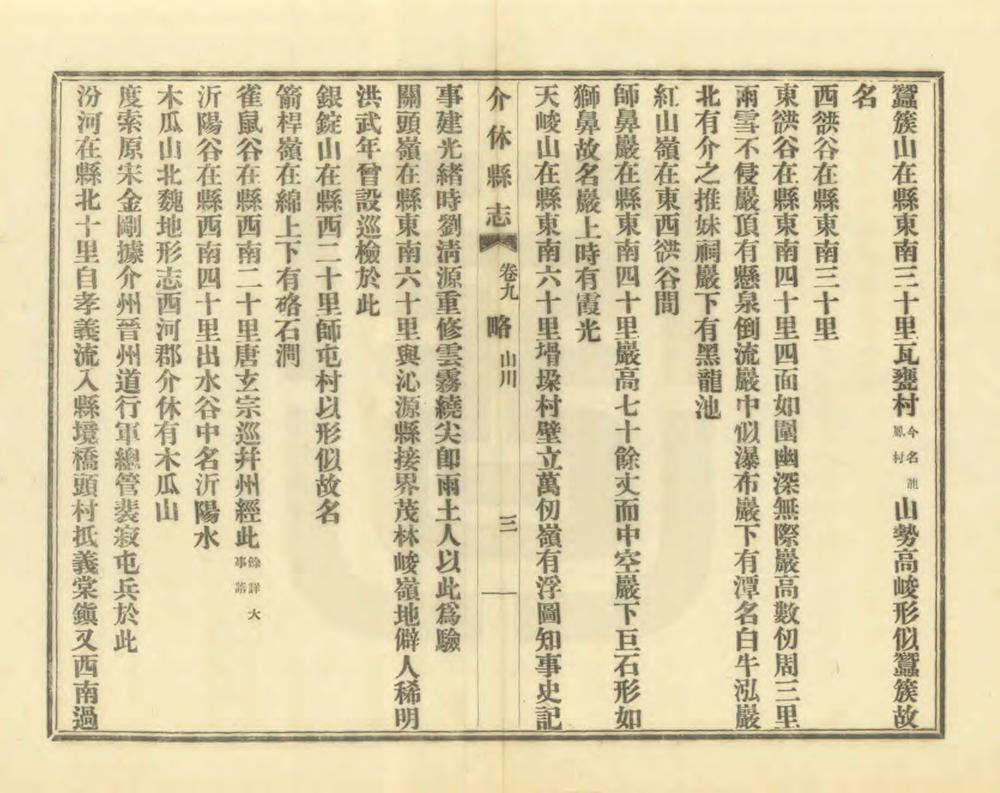 蠶簇山在縣東南三十里瓦甕村今名龍鳳村山勢高峻形似蠶簇故
名
西谼谷在縣東南三十里
東谼谷在縣東南四十里四面如圍幽深無際巖高數仞周三里
雨雪不侵巖頂有懸泉倒流巖中似瀑布巖下有潭名白牛泓巖
北有介之推妹祠巖下有黑龍池
紅山嶺在東西谼谷間
師鼻巖在縣東南四十里巖高七十餘丈面中空巖下巨石形如
獅鼻故名巖上時有霞光
天峻山在縣東南六十里㙮垜村壁立萬仞嶺有浮圖知事史記
介休縣志 卷九 略 山川 三
事建光緒時劉清源重修雲霧繞尖卽雨土人以此爲驗
關頭嶺在縣東南六十里與沁源縣接界茂林峻嶺地僻人稀明
洪武年曾設巡檢於此
銀錠山在縣西二十里師屯村以形似故名
箭桿嶺在綿上下有硌石澗
雀鼠谷在縣西南二十里唐玄宗巡幷州經此餘詳大事譜
沂陽谷在縣西南四十里出水谷中名沂陽水
木瓜山北魏地形志西河郡介休有木瓜山
度索原宋金剛據介州晉州道行軍總管裴寂屯兵於此
汾河在縣北十里自孝義流入縣境橋頭村抵義棠鎭又西南過